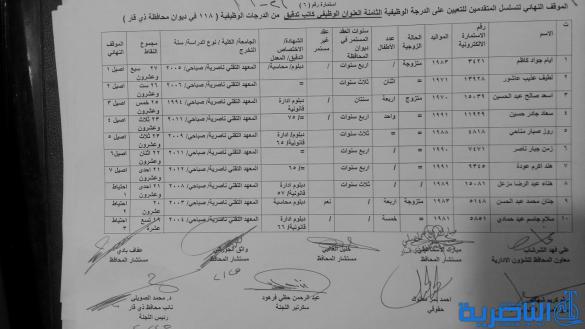 استمارة رقم (٦)
الموقف النهائي لتسلسل المتقدمين للتعيين على الدرجة الوظيفية الثامنة العنوان الوظيفي كاتب تدقيق من الدرجات الوظيفية (١١٨) في ديوان محافظة ذي قار
ت الاسم رقم الاستمارة الالكترونية المواليد الحالة الزوجية عدد الاطفال سنوات العقد المستمر في ديوان المحافظة عقد غير مستمر الشهادة/ الاختصاص الدقيق/ المعدل الجامعة/ الكلية / نوع الدراسة/ سنة التخرج مجموع النقاط الموقف النهائي
١ ايام جواد كاظم ٣٤٢١ ١٩٨٣ متزوج / اربع سنوات / دبلوم/ محاسبة/ المعهد التقني ناصرية/ صباحي/ ٢٠٠٥ ٢٧ سبع وعشرون اصيل ١
٢ لطيف عذيب عاشور ١٣٩٢٨ ١٩٧١ = اثنان ثلاث سنوات / المعهد التقني ناصرية/ صباحي ٢٦ ست وعشرون اصيل ٢
٣ اسعد صالح عبد الحسين ١٥٠٣٩ ١٩٧٠ متزوج اربعة سنتان / دبلوم ادارة قانونية المعهد التقني ناصرية/ صباحي/ ١٩٩٤ ٢٥ خمس وعشرون اصيل ٣
٤ سعاد جابر حسين ١١٩٢٩ ١٩٩١ = واحد اربع سنوات / = /٧٥ المعهد التقني ناصرية/ صباحي/ ٢٠١١ ٢٣ ثلاث وعشرون اصيل ٤
٥ روز صبار مناحي ٤٨١٨ ١٩٨٨ / / ثلاث سنوات / دبلوم ادارة قانونية/ ٦٥ المعهد التقني ناصرية/ صباحي/ ٢٠٠٩ ٢٣ ثلاث وعشرون
٦ زمن جبار ناصر ٧٤٧١ ١٩٩٠ / / اربع سنوات / = المعهد التقني ناصرية/ صباحي/ ٢٠١١ ٢٢ اثنان وعشرون اصيل٦
٧ هند اكرم عودة ٩٣٤٥ ١٩٩١ / / = / = /٦٥ المعهد التقني ناصرية/ صباحي/ ٢٠١٢ ٢١ احدى وعشرون اصيل ٧
٨ هناء عبد الرضا مزعل ١٥٠٨١ ١٩٨٧ / / ثلاث سنوات / دبلوم ادارة قانونية/ ٥٧ المعهد التقني ناصرية/ صباحي/ ٢٠٠٨ ٢١ احدى وعشرون احتياط
٩ جنان محمد عبد الحسن ٥١٤٨ ١٩٨٣ متزوجة اربعة / نعم دبلوم محاسبة المعهد التقني ناصرية/ صباحي/ ٢٠٠٣ ٢٠ عشرة احتياط
١٠ سلام جاسم عبد حمادي ٥٨٥١ ١٩٨١ = خمسة / دبلوم ادارة قانونية/ ٦٦ المعهد التقني ناصرية/ صباحي/ ٢٠٠٣ ١٩ تسع عشرة احتياط ٣
علي فهد الشرشاب
معاون المحافظ للشؤون الادارية
مستشار المحافظ
مستشار المحافظ
مستشار المحافظ
عفاف بادي
مستشار المحافظ
حقوقي
عبد الرحمن حنظي فرهود
سكرتير اللجنة
د. محمد الصويلي
نائب محافظ ذي قار
رئيس اللجنة
الناصرية